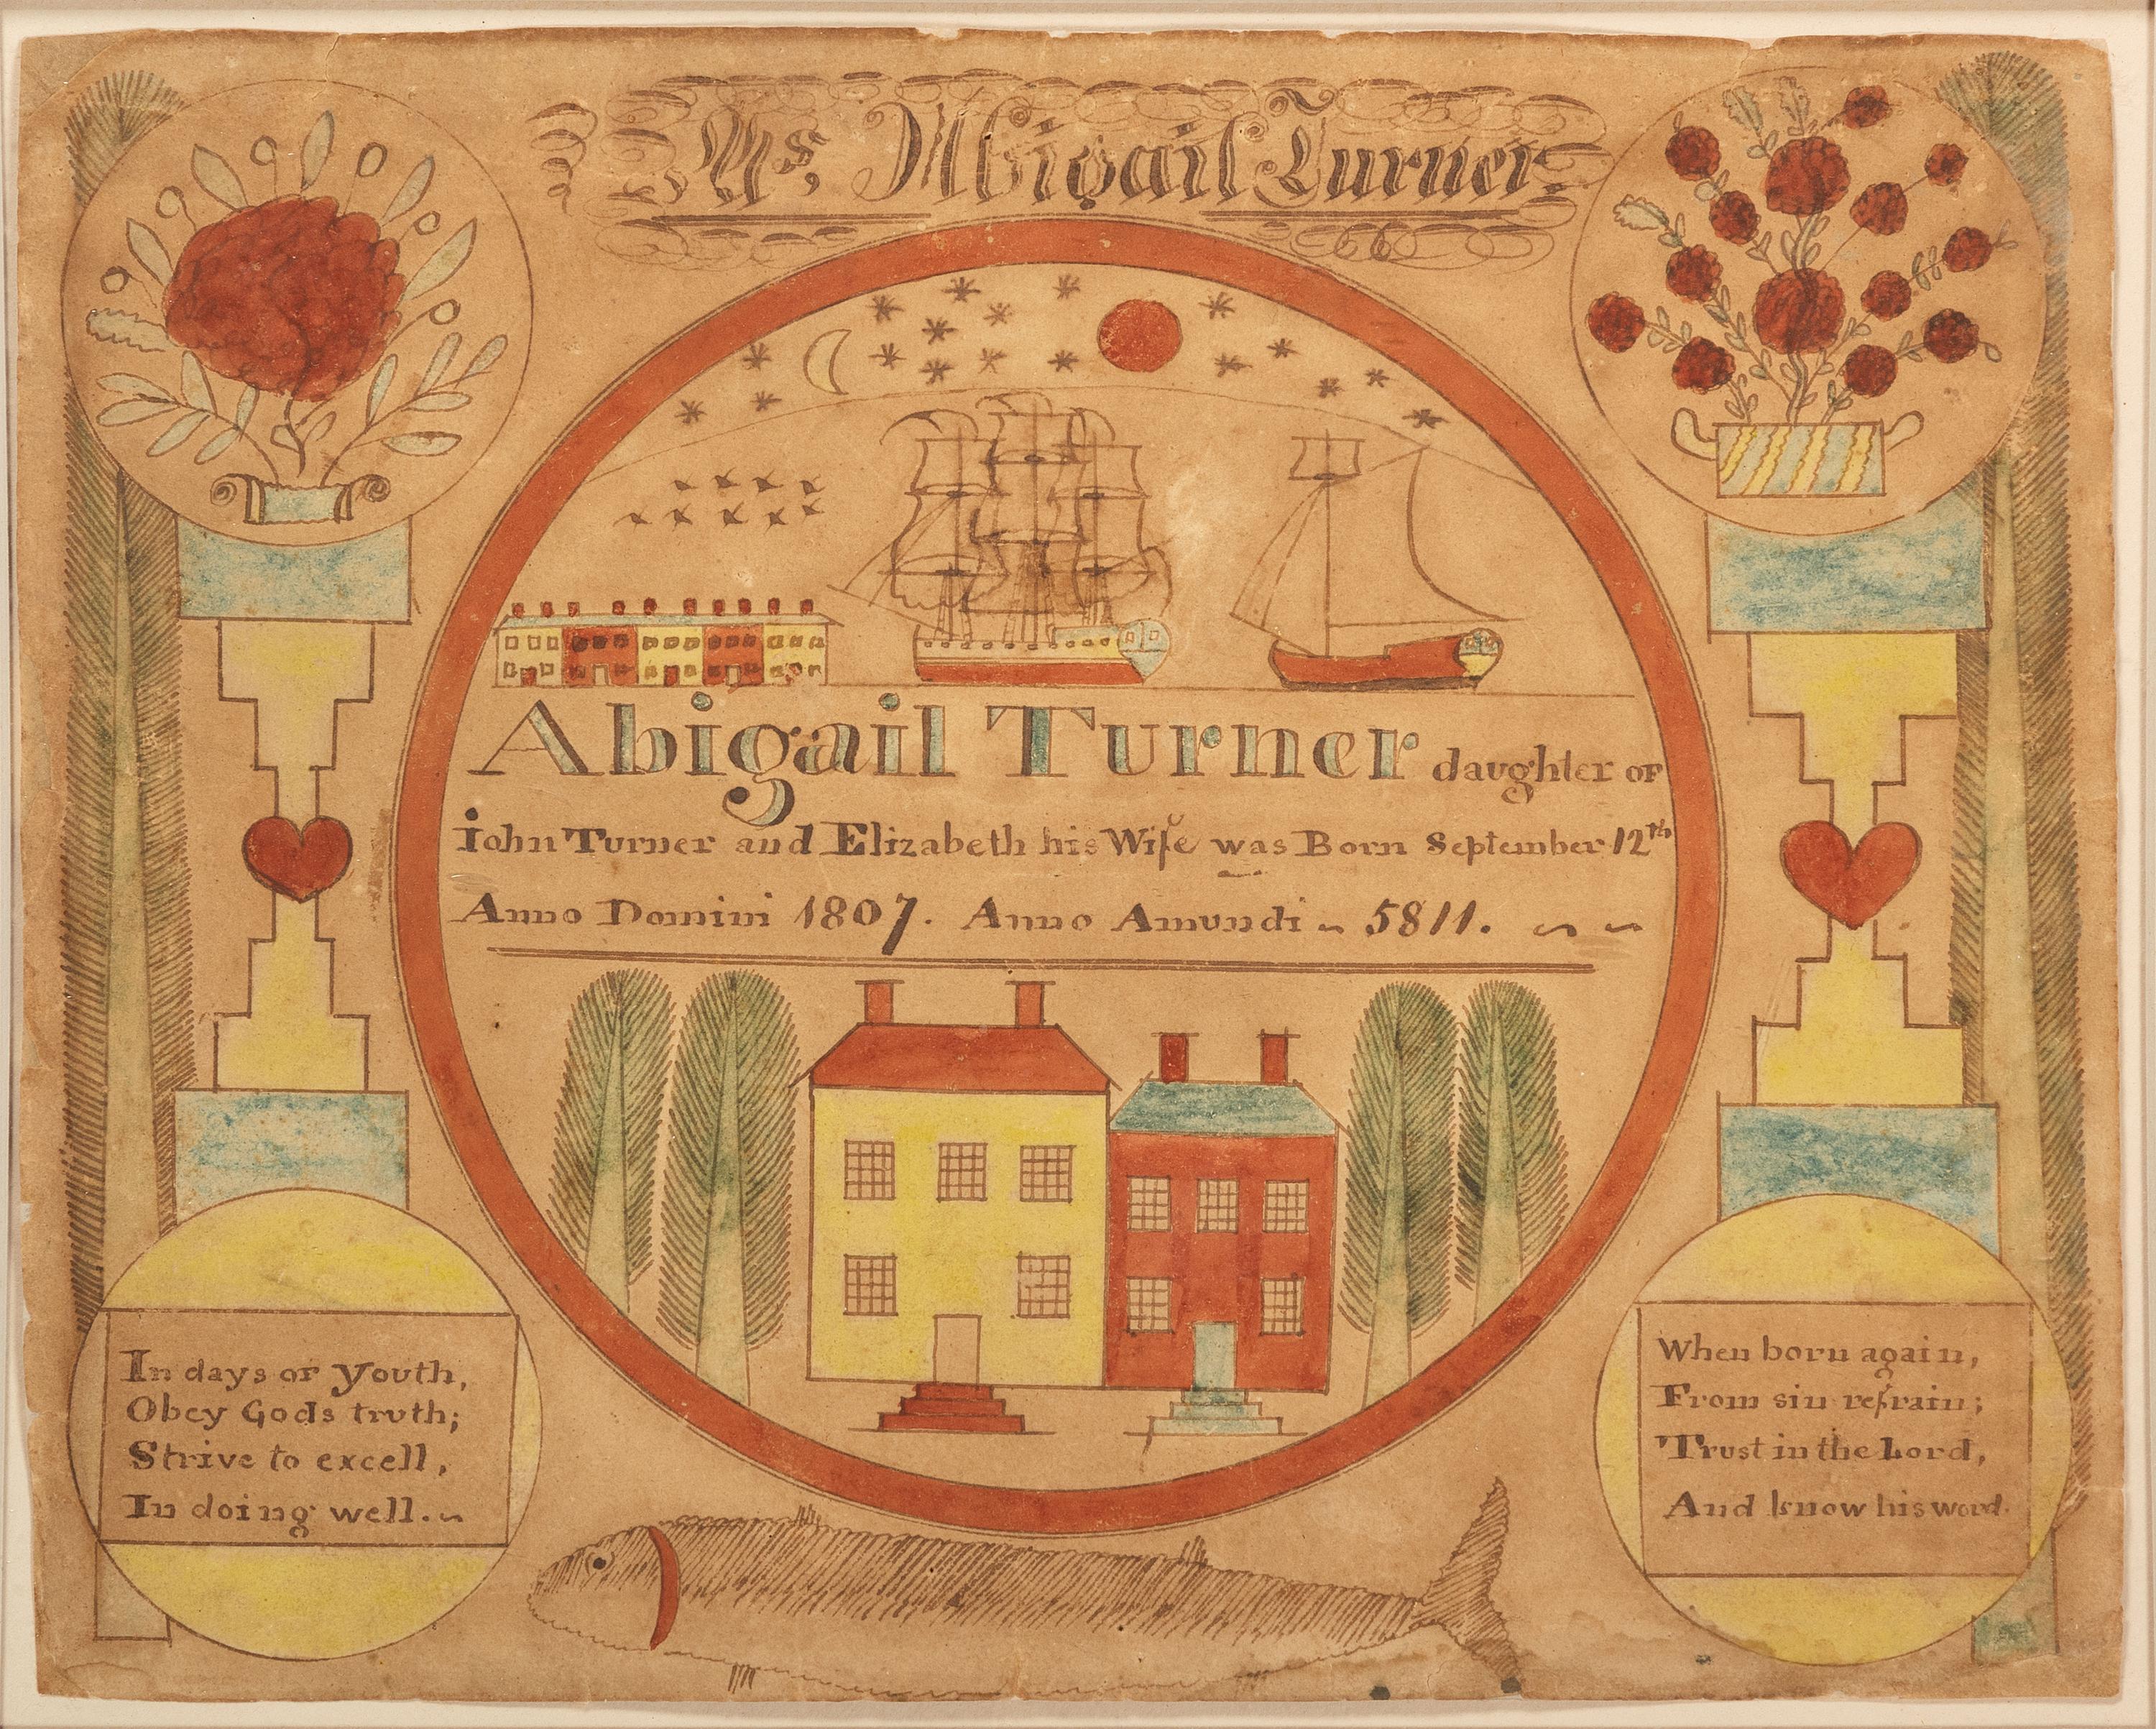 Ms. Abigail Turner.
Abigail Turner daughter of
John Turner and Elizabeth his Wife was Born September 12th
Anno Domini 1807. Anno Amundi ~ 5811. ~ ~
In days of youth,
Obey Gods truth;
Strive to excell,
In doing well. ~
When born again,
From sin refrain;
Trust in the Lord,
And know his word.